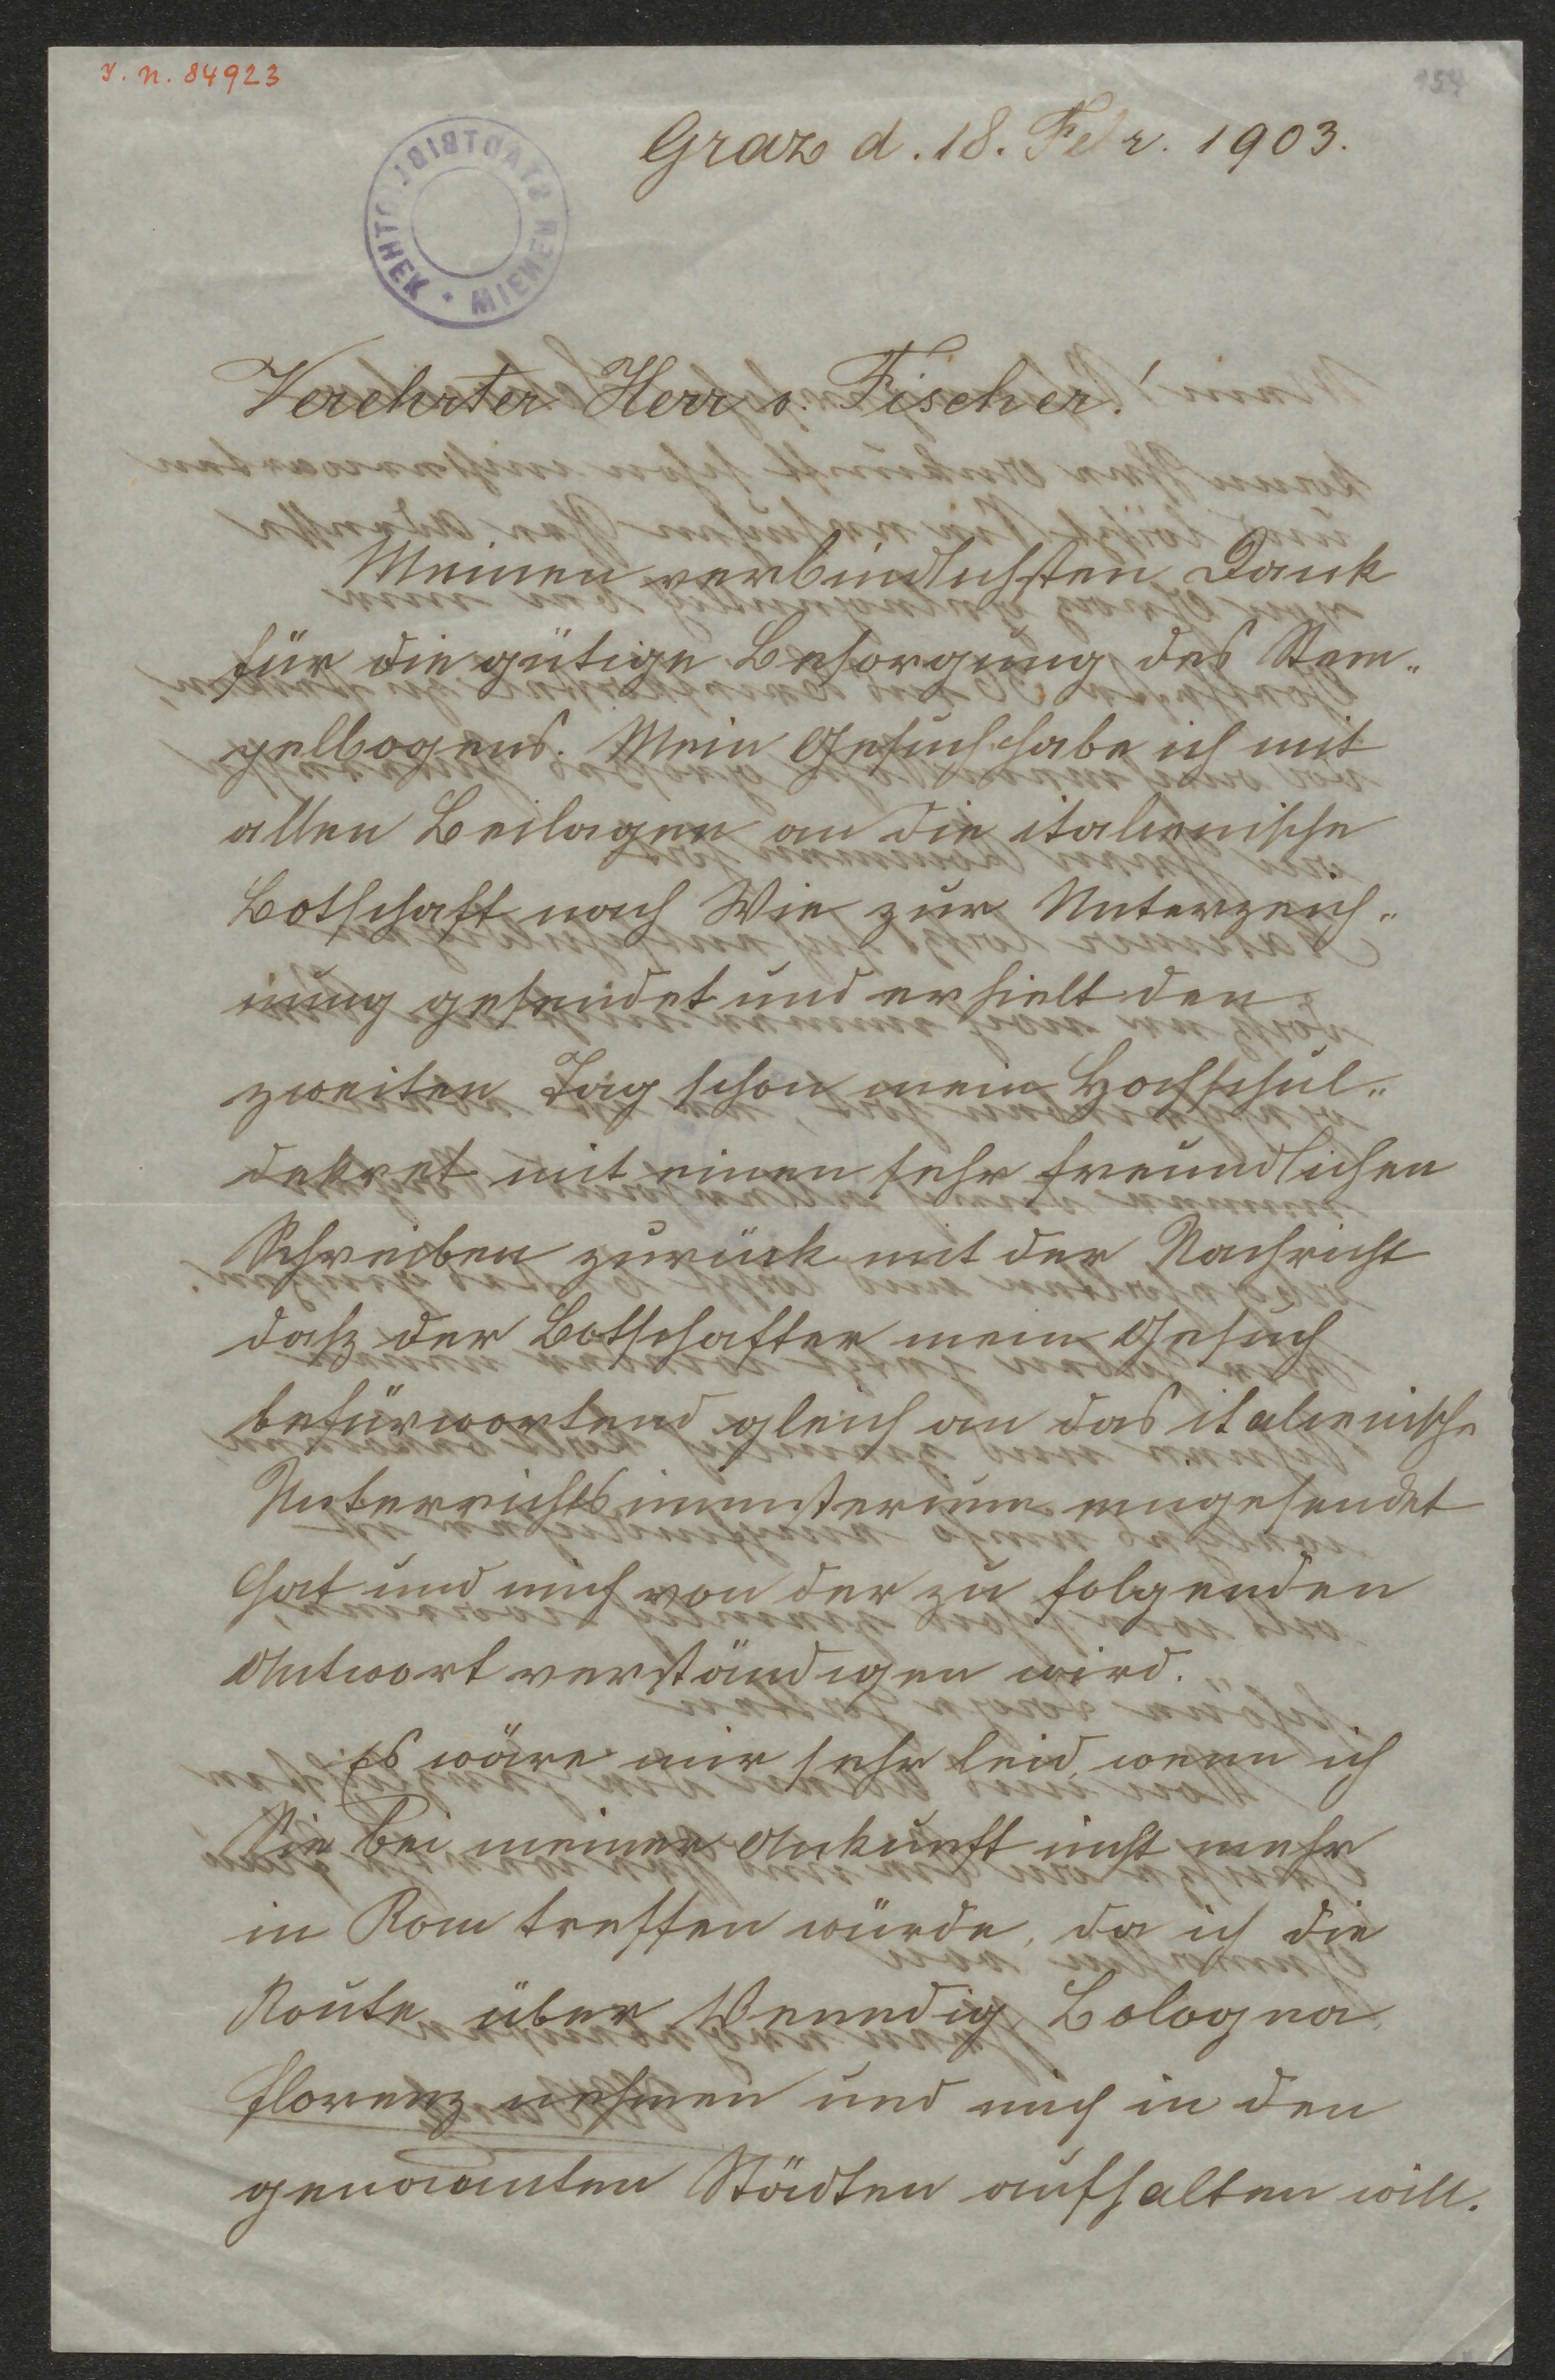 J. N. 84923
154
STADTBIBLIOTHEK * WIENER
Graz d. 18. Febr. 1903.
Verehrter Herr v. Fischer!
Meinen verbindlichsten Dank
für die gütige Besorgung des Stem„
pelbogens. Mein Gesuch habe ich mit
allen Beilagen an die italienische
Botschaft nach Wie zur Unterzeich„
nung gesendet und erhielt den
zweiten Tag schon mein Hochschul„
dekret mit einen sehr freundlichen
Schreiben zurück mit der Nachricht
daß der Botschafter mein Gesuch
befürwortend gleich an das italienische
Unterrichtsministerium eingesendet
hat und mich von der zu folgenden
Antwort verständigen wird.
Es wäre mir sehr leid, wenn ich
Sie bei meiner Ankunft nicht mehr
in Rom treffen würde, da ich die
Route über Venedig Bologna,
Florenz nehmen und mich in den
genannten Städten aufhalten will.